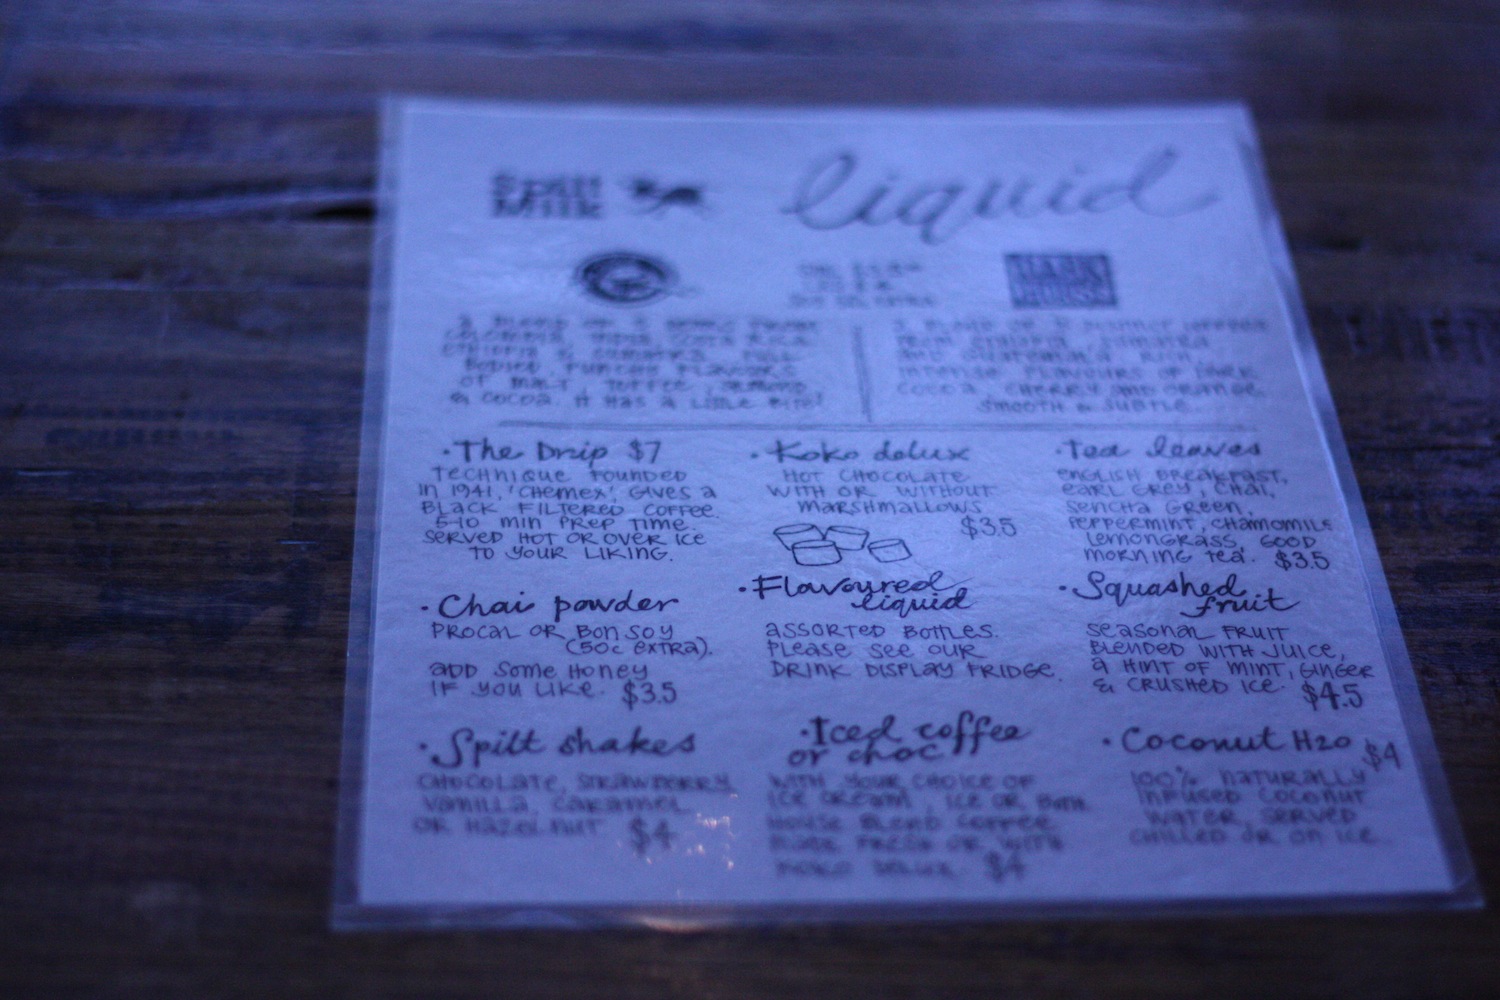 Spilt
Milk
liquid
COLOMBIA, INDIA, COSTA RICA
ETHIOPIA & SUMATRA. FULL
BODIED, PUNCHY FLAVORS
OF MALT, TOFFEE, ALMOND,
& COCOA. IT HAS A LITTLE BITE!
AND GUATEMALA. RICH,
INTENSE FLAVOURS OF DARK
COCOA, CHERRY AND ORANGE.
SMOOTH & SUBTLE.
·The Drip $7
TECHNIQUE FOUNDED
IN 1941, 'CHEMEX', GIVES A
BLACK FILTERED COFFEE.
5-10 MIN PREP TIME.
SERVED HOT OR OVER ICE
TO YOUR LIKING.
·Koko deluxe
HOT CHOCOLATE
WITH OR WITHOUT
MARSHMALLOWS
$3.5
·Tea leaves
ENGLISH BREAKFAST,
EARL GREY, CHAI,
SENCHA GREEN,
PEPPERMINT, CHAMOMILE
LEMONGRASS, GOOD
MORNING TEA. $3.5
·Chai powder
PROCAL OR BONSOY
(50c EXTRA).
ADD SOME HONEY
IF YOU LIKE. $3.5
·Flavoured
liquid
ASSORTED BOTTLES.
PLEASE SEE OUR
DRINK DISPLAY FRIDGE.
·Squashed
fruit
SEASONAL FRUIT
BLENDED WITH JUICE,
A HINT OF MINT, GINGER
& CRUSHED ICE. $4.5
·Spilt shakes
CHOCOLATE, STRAWBERRY
VANILLA, CARAMEL
OR HAZELNUT $4
·Iced coffee
or choc
WITH YOUR CHOICE OF
ICE CREAM, ICE OR BOTH.
HOUSE BLEND COFFEE
MADE FRESH OR WITH
KOKO DELUX. $4
·Coconut H2O $4
100% NATURALLY
INFUSED COCONUT
WATER, SERVED
CHILLED OR ON ICE.